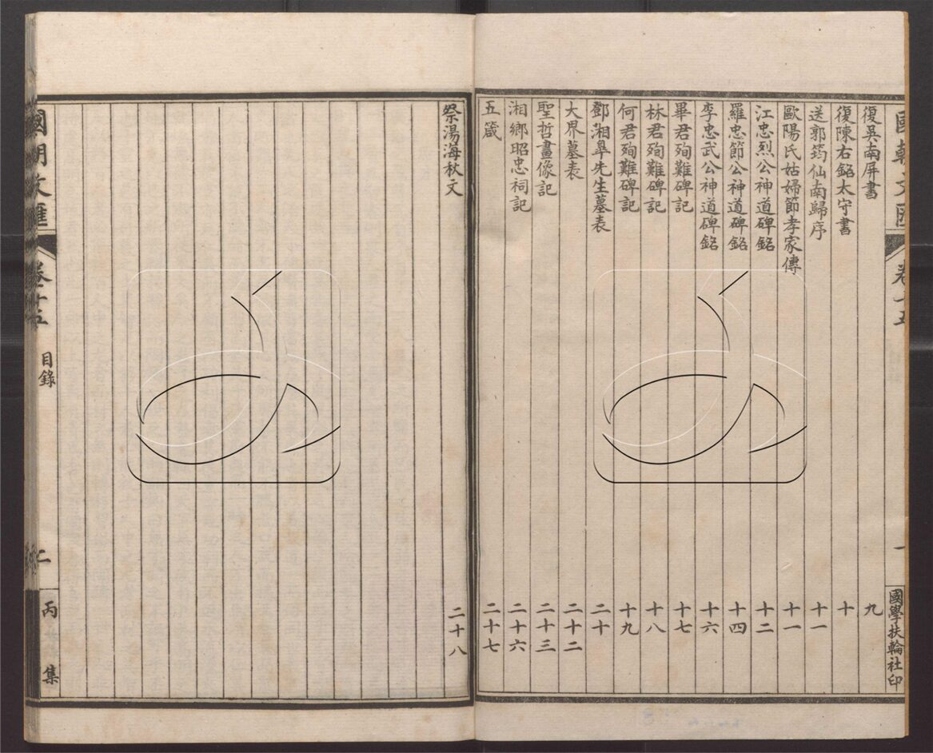 國朝文匯 卷十五 一 國學扶輪社印
復吳南屏書 九
復陳右銘太守書 十
送郭筠仙南歸序 十一
歐陽氏姑婦節孝家傳 十一
江忠烈公神道碑銘 十二
羅忠節公神道碑銘 十四
李忠武公神道碑銘 十六
畢君殉難碑記 十七
林君殉難碑記 十八
何君殉難碑記 十九
鄧湘皋先生墓表 二十
大界墓表 二十二
聖哲畫像記 二十三
湘鄉昭忠祠記 二十六
五箴 二十七
祭湯海秋文 二十八
國朝文匯 卷十五 目錄 二 丙集